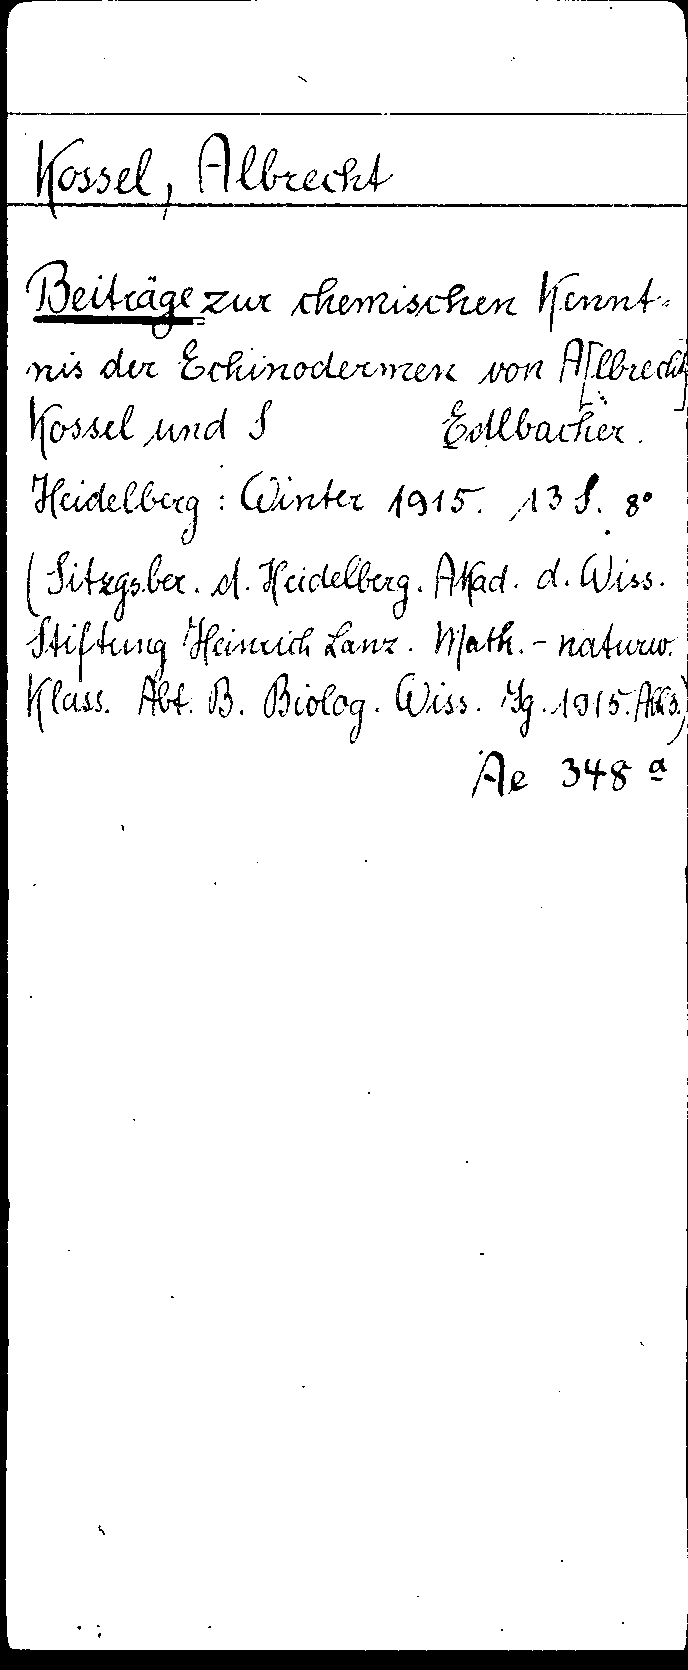 Kossel, Albrecht
Beiträge zur chemischen Kennt-
nis der Echinodermen von A[lbrecht]
Kossel und S Edlbacher.
Heidelberg: Winter 1915. 13 S. 8°
(Sitzgsber. d. Heidelberg. Akad. d. Wiss.
Stiftung Heinrich Lanz. Math.-naturw.
Klass. Abt. B. Biolog. Wiss. Jg. 1915. Abh 3.)
Ae 348 a